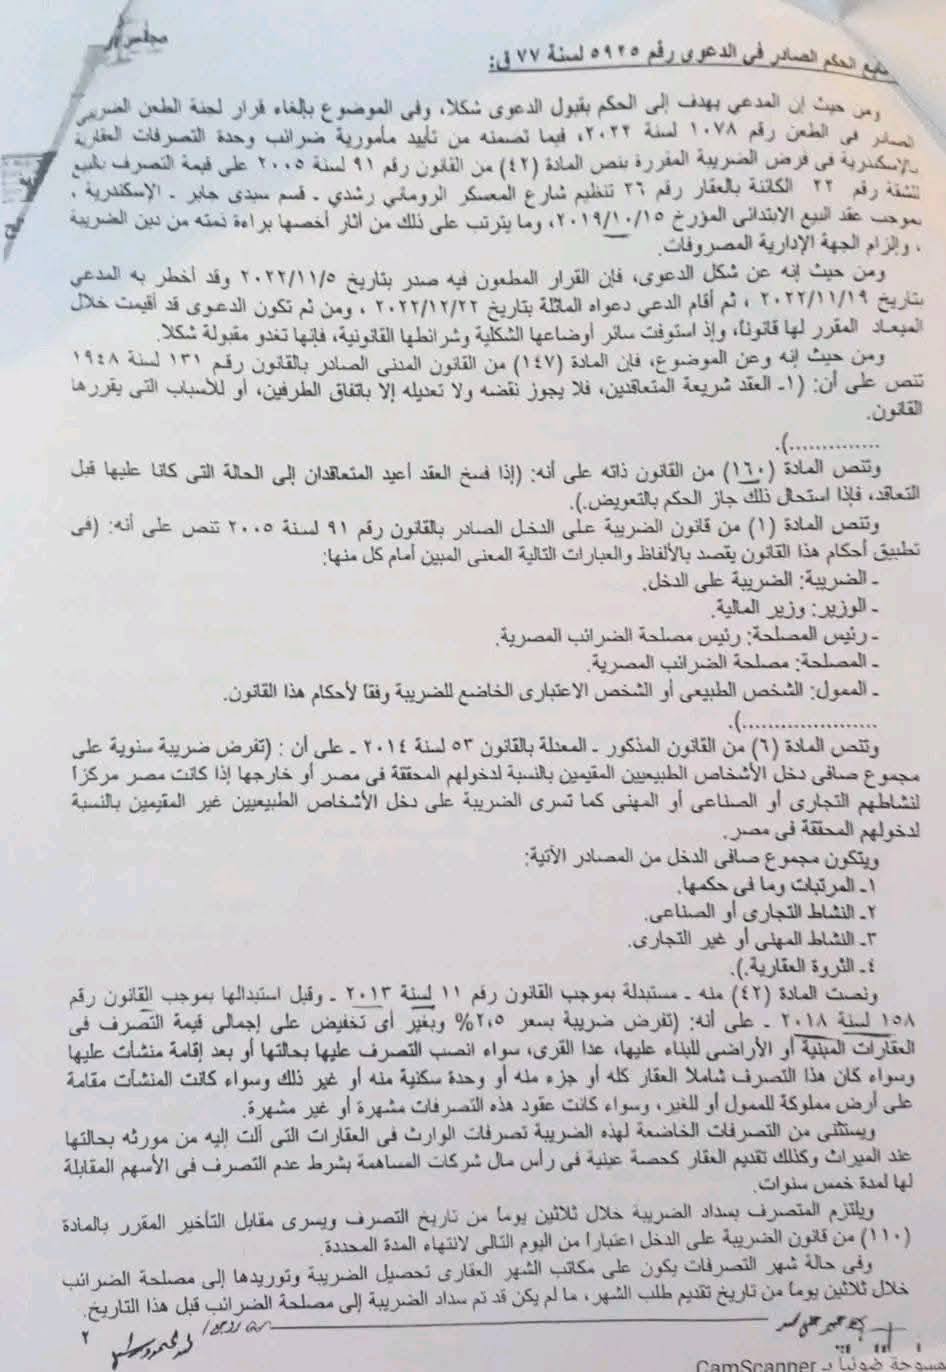 مجلس
تابع الحكم الصادر فى الدعوى رقم ٥٩٢٥ لسنة ٧٧ ق:
ومن حيث إن المدعي يهدف إلى الحكم بقبول الدعوى شكلاً، وفى الموضوع بإلغاء قرار لجنة الطعن الضريبي
الصادر فى الطعن رقم ١٠٧٨ لسنة ٢٠٢٢، فيما تضمنه من تأييد مأمورية ضرائب وحدة التصرفات العقارية
بالإسكندرية فى فرض الضريبة المقررة بنص المادة (٤٢) من القانون رقم ٩١ لسنة ٢٠٠٥ على قيمة التصرف بالبيع
للشقة رقم ٢٢ الكائنة بالعقار رقم ٢٦ تنظيم شارع المعسكر الروماني رشدي ـ قسم سيدى جابر ـ الإسكندرية ،
بموجب عقد البيع الابتدائى المؤرخ ٢٠١٩/١٠/١٥، وما يترتب على ذلك من آثار أخصها براءة ذمته من دين الضريبة
، وإلزام الجهة الإدارية المصروفات.
ومن حيث إنه عن شكل الدعوى، فإن القرار المطعون فيه صدر بتاريخ ٢٠٢٢/١١/٥ وقد أخطر به المدعي
بتاريخ ٢٠٢٢/١١/١٩ ، ثم أقام الدعي دعواه الماثلة بتاريخ ٢٠٢٢/١٢/٢٢ ، ومن ثم تكون الدعوى قد أقيمت خلال
الميعاد المقرر لها قانوناً، وإذ استوفت سائر أوضاعها الشكلية وشرائطها القانونية، فإنها تغدو مقبولة شكلا.
ومن حيث إنه وعن الموضوع، فإن المادة (١٤٧) من القانون المدنى الصادر بالقانون رقم ١٣١ لسنة ١٩٤٨
تنص على أن: (١ـ العقد شريعة المتعاقدين، فلا يجوز نقضه ولا تعديله إلا باتفاق الطرفين، أو للأسباب التى يقررها
القانون.
..............).
وتنص المادة (١٦٠) من القانون ذاته على أنه: (إذا فسخ العقد أعيد المتعاقدان إلى الحالة التى كانا عليها قبل
التعاقد، فإذا استحال ذلك جاز الحكم بالتعويض.).
وتنص المادة (١) من قانون الضريبة على الدخل الصادر بالقانون رقم ٩١ لسنة ٢٠٠٥ تنص على أنه: (فى
تطبيق أحكام هذا القانون يقصد بالألفاظ والعبارات التالية المعنى المبين أمام كل منها:
ـ الضريبة: الضريبة على الدخل.
ـ الوزير: وزير المالية.
ـ رئيس المصلحة: رئيس مصلحة الضرائب المصرية.
ـ المصلحة: مصلحة الضرائب المصرية.
ـ الممول: الشخص الطبيعى أو الشخص الاعتبارى الخاضع للضريبة وفقا لأحكام هذا القانون.
....................).
وتنص المادة (٦) من القانون المذكور ـ المعدلة بالقانون ٥٣ لسنة ٢٠١٤ ـ على أن : (تفرض ضريبة سنوية على
مجموع صافى دخل الأشخاص الطبيعيين المقيمين بالنسبة لدخولهم المحققة فى مصر أو خارجها إذا كانت مصر مركزاً
لنشاطهم التجارى أو الصناعى أو المهنى كما تسرى الضريبة على دخل الأشخاص الطبيعيين غير المقيمين بالنسبة
لدخولهم المحققة فى مصر.
ويتكون مجموع صافى الدخل من المصادر الآتية:
١ـ المرتبات وما فى حكمها.
٢ـ النشاط التجارى أو الصناعى.
٣ـ النشاط المهنى أو غير التجارى.
٤ـ الثروة العقارية.).
ونصت المادة (٤٢) منه ـ مستبدلة بموجب القانون رقم ١١ لسنة ٢٠١٣ ـ وقبل استبدالها بموجب القانون رقم
١٥٨ لسنة ٢٠١٨ ـ على أنه: (تفرض ضريبة بسعر ٢,٥% وبغير أى تخفيض على إجمالى قيمة التصرف فى
العقارات المبنية أو الأراضى للبناء عليها، عدا القرى، سواء انصب التصرف عليها بحالتها أو بعد إقامة منشآت عليها
وسواء كان هذا التصرف شاملا العقار كله أو جزء منه أو وحدة سكنية منه أو غير ذلك وسواء كانت المنشآت مقامة
على أرض مملوكة للممول أو للغير، وسواء كانت عقود هذه التصرفات مشهرة أو غير مشهرة.
ويستثنى من التصرفات الخاضعة لهذه الضريبة تصرفات الوارث فى العقارات التى آلت إليه من مورثه بحالتها
عند الميراث وكذلك تقديم العقار كحصة عينية فى رأس مال شركات المساهمة بشرط عدم التصرف فى الأسهم المقابلة
لها لمدة خمس سنوات.
ويلتزم المتصرف بسداد الضريبة خلال ثلاثين يوماً من تاريخ التصرف ويسرى مقابل التأخير المقرر بالمادة
(١١٠) من قانون الضريبة على الدخل اعتباراً من اليوم التالى لانتهاء المدة المحددة.
وفى حالة شهر التصرفات يكون على مكاتب الشهر العقارى تحصيل الضريبة وتوريدها إلى مصلحة الضرائب
خلال ثلاثين يوماً من تاريخ تقديم طلب الشهر، ما لم يكن قد تم سداد الضريبة إلى مصلحة الضرائب قبل هذا التاريخ.
٢
ممسوحة ضوئيا بـ CamScanner